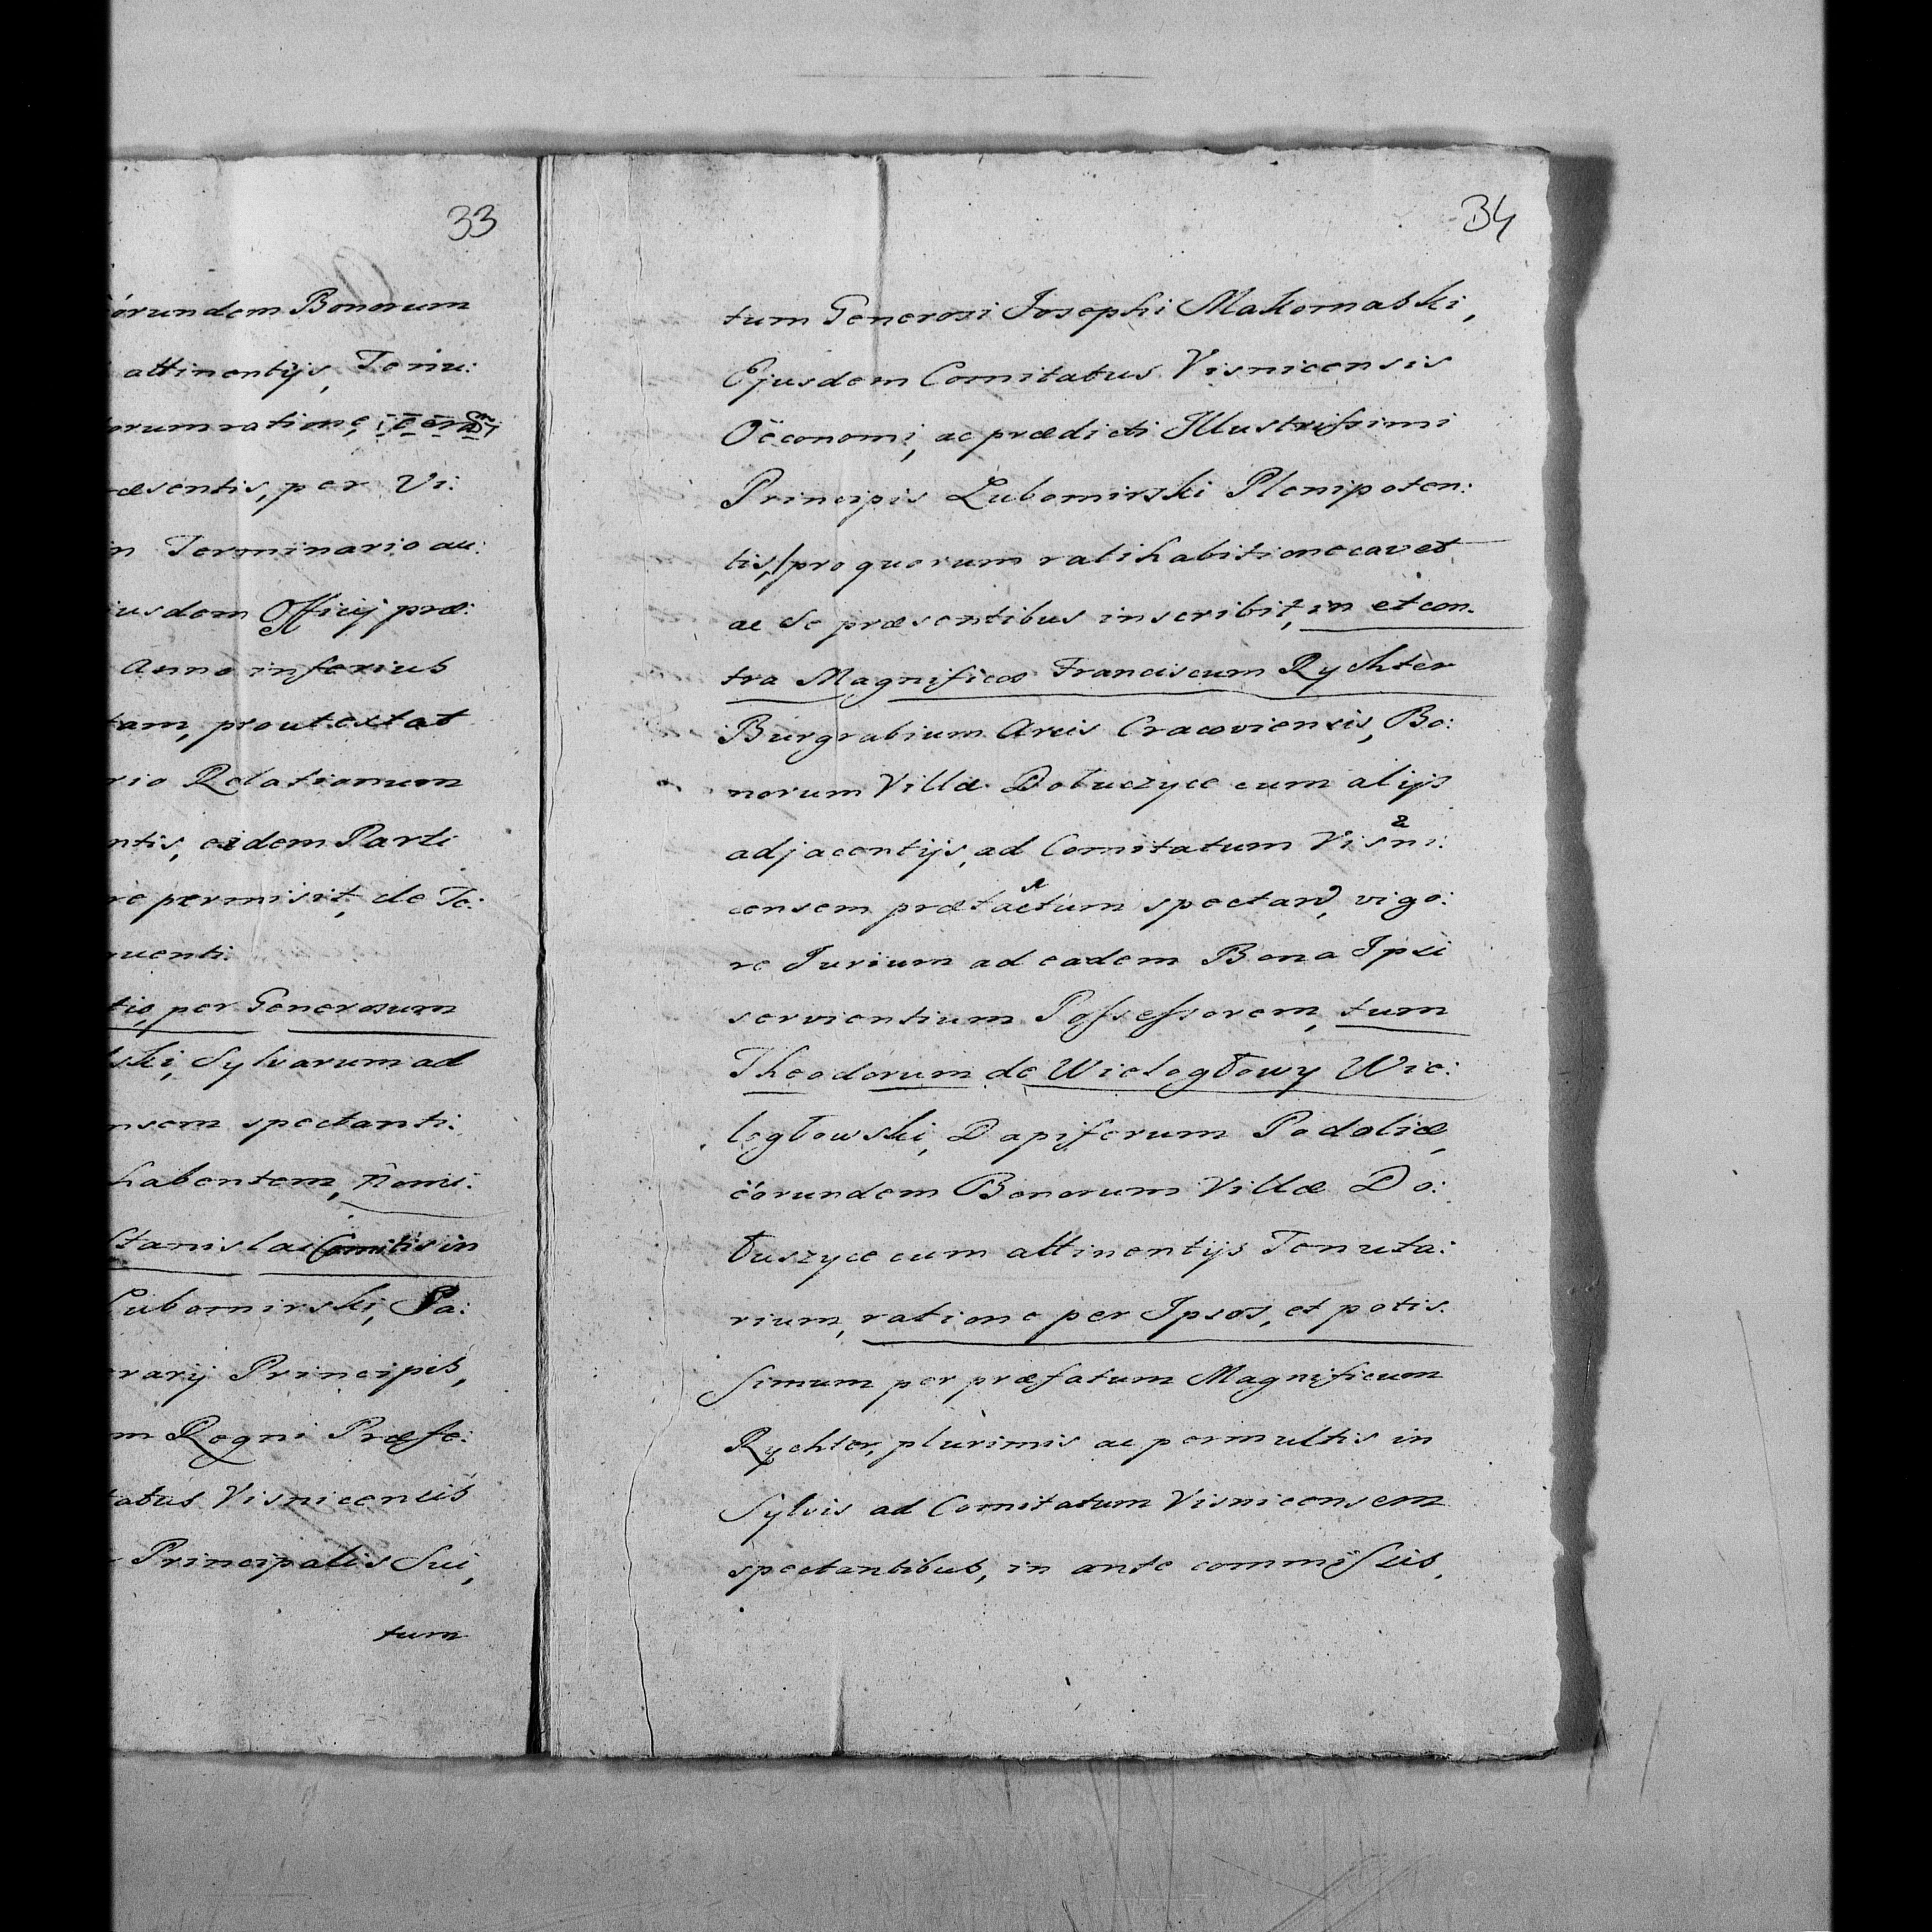 33
orundem Bonorum
attinentijs, Tenu:
orum ratione,
æsentis, per Vi:
in Terminario au:
iusdem Officij præ:
Anno inferius
tam, prout extat
rio Relationum
ntis, eidem Parti
re permisit, de Te:
quenti.
tio, per Generosum
ski, Sylvarum ad
nsem spectanti:
habentem, nomi:
Stanislai Comitis in
Lubomirski, Sa:
rarij Principis,
m Regni Præfe:
tatus Visnicensis
Principalis Sui,
tum
34
tum Generosi Josephi Makomaski,
Ejusdem Comitatus Visnicensis
Oëconomi, ac prædicti Illustrissimi
Principis Lubomirski Plenipoten:
tis,/pro quorum ratihabitione cavet
ac se præsentibus inscribit, in et con.
tra Magnificos Franciscum Rychter
Burgrabium Arcis Cracoviensis, Bo:
norum Villæ Dołuczyce cum alijs
adjacentijs, ad Comitatum Visni:
censem præfatum spectan, vigo:
re Jurium ad eadem Bona Ipsi
servientium Possessorem, tum
Theodorum de Wielogłowy Wie:
logłowski, Dapiferum Podoliæ,
eorundem Bonorum Villæ Do:
łuszyce cum attinentijs Tenuta:
rium, ratione per Ipsos, et potis.
simum per præfatum Magnificum
Rychter, plurimis ac permultis in
Sylvis ad Comitatum Visnicensem
spectantibus, in ante commissis,